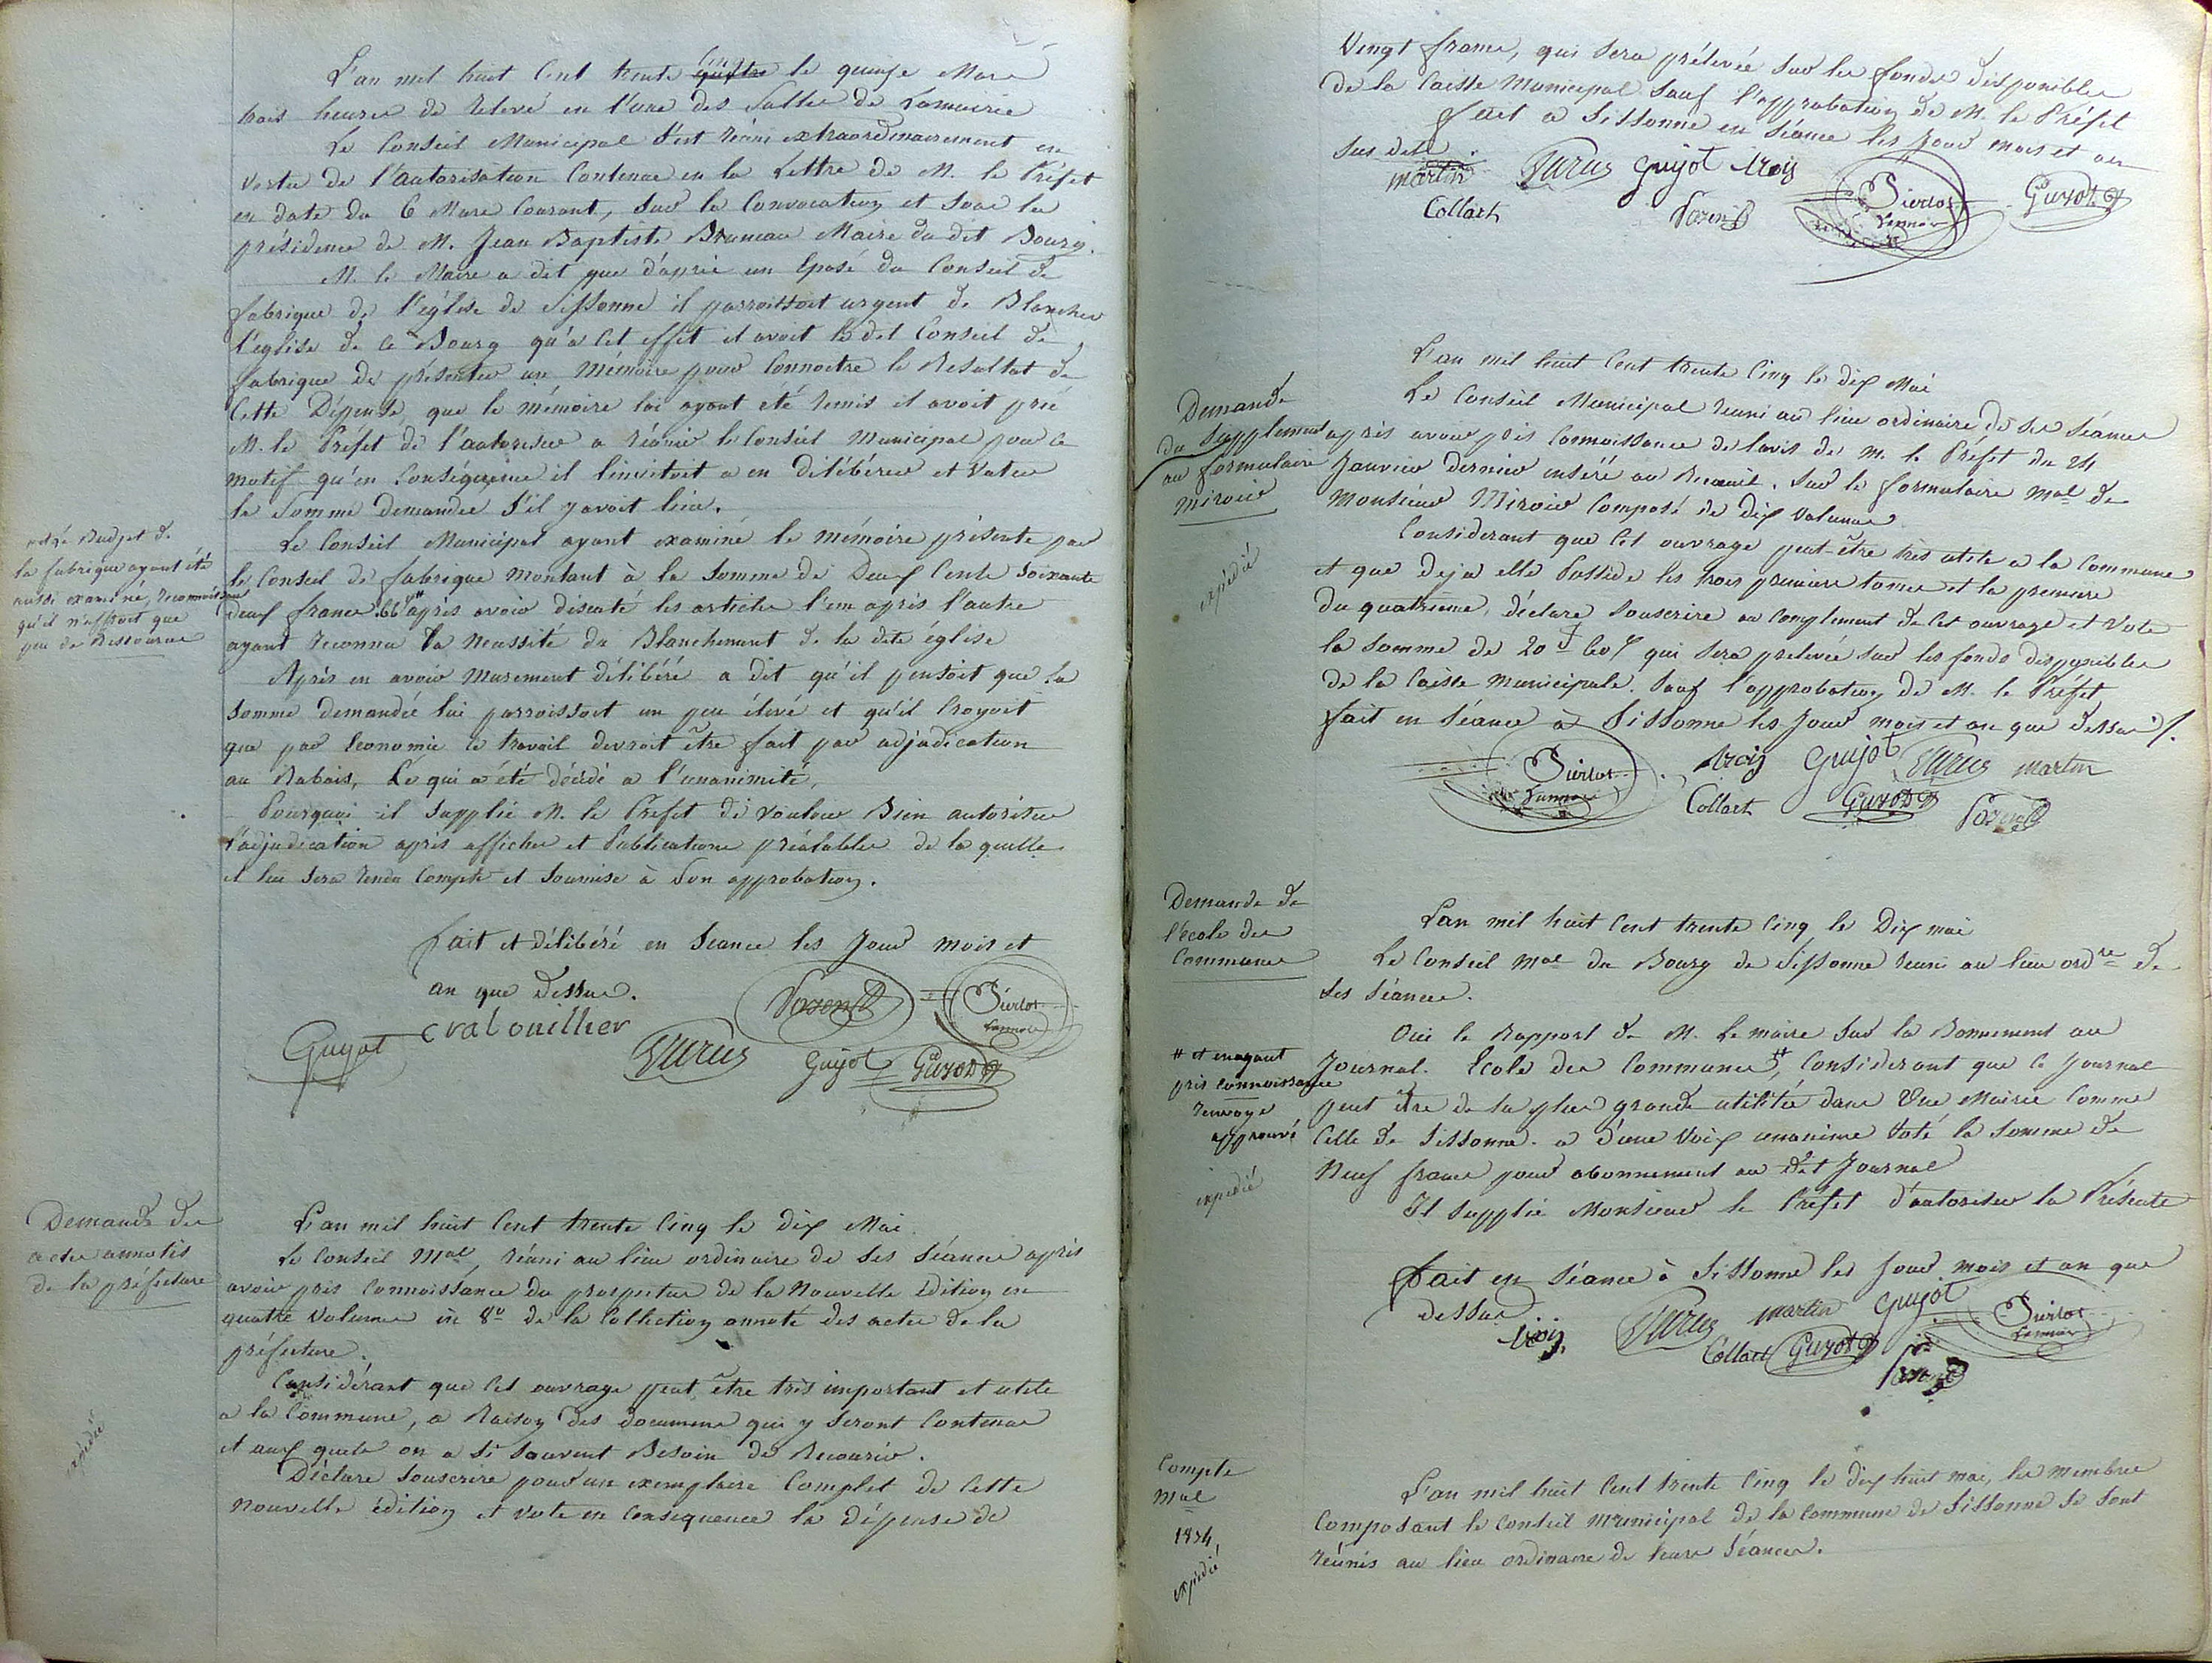 L'an mil huit Cent trente quatre Cinq le quinze Mars
trois heures de relevé en l'une des Salles de Lamairie
Le Conseil Municipal s'est réuni extraordinairement en
vertu de l'autorisation Contenue en la Lettre de M. le Préfet
en date du 6 Mars Courant, sur la Convocation et sous la
présidence de M. Jean Baptiste Bruneau Maire du dit Bourg.
M. le Maire a dit que d'après un Exposé du Conseil de
fabrique de l'église de Sissonne il parroissoit urgent de Blanchir
l'église de ce Bourg qu'a cet effet il avoit le dit Conseil de
fabrique de présenter un Mémoire pour Connoitre le Resultat de
Cette Dépense, que le mémoire lui ayant été remis il avoit prié
M. le Préfet de l'autoriser a réunir le Conseil Municipal pour ce
motif qu'en Conséquence il l'invitoit a en Délibérer et Voter
la Somme demandée S'il y avoit lieu.
Le Conseil Municipal ayant examiné le mémoire présenté par
le Conseil de fabrique Montant à la Somme de Deux Cents soixante
neuf francs 66 # après avoir discuté les articles l'un après l'autre
ayant reconnu la Necessité du Blanchement de la dite église
Après en avoir Murement délibéré a dit qu'il pensoit que la
somme demandée lui parroissoit un peu élevé et qu'il Croyoit
que par économie le travail devroit être fait par adjudication
au Rabais, Ce qui a été décidé a l'unanimité,
Pourquoi il supplie M. le Prefet de vouloir Bien autoriser
l'adjudication après affiches et Publications préalables de la quelle
il lui sera rendu Compte et soumise à Son approbation.
# et le Budget de
la fabrique ayant été
aussi examiné, reconnoissant
qu'il n'offroit que
peu de Ressource
fait et délibéré en Séance les Jour mois et
an que Dessus.
Parent
Pierlot
Guyot
cvalouillier
Turus
Guyot
Guyot
Demande des
actes annotés
de la préfecture
expédié
L'an mil huit Cent trente Cinq le dix Mai
Le Conseil Mal, réuni au lieu ordinaire de Ses Séances après
avoir pris Connoissance du prospectus de la Nouvelle édition en
quatre Volumes in 8o de la Collection annoté des actes de la
préfecture.
Considérant que Cet ouvrage peut être très important et utile
a la Commune, a Raison des documens qui y seront Contenus
et aux quels on a si souvent Besoin de Recourir.
Déclare souscrire pour un exemplaire Complet de Cette
nouvelle édition et vote en Consequence la dépense de
Vingt francs, qui sera prélevée sur les fonds disponibles
de la Caisse Municipal sauf l'approbation de M. le Préfet
fait a Sissonne en Séance les Jour mois et an
sus dits.
Martin Turus Guyot Croix Pierlot Guyot
Collart Parent
Demande
du Supplement
au formulaire
Miroir
expédié
L'an mil huit Cent trente Cinq le dix Mai
Le Conseil Municipal reuni au lieu ordinaire de ses Séances
après avoir pris Connoissance de l'avis de M. le Préfet du 24
Janvier dernier inséré au Recueil, sur le formulaire Mal de
Monsieur Miroir Composé de dix Volumes
Considerant que Cet ouvrage peut-être très utile a la Commune
et que deja elle Possède les trois premiers tomes et la premiere
du quatrieme, déclare souscrire au Complement de Cet ouvrage et Vote
la somme de 20 f 60 c qui sera prelevée sur les fonds disponibles
de la Caisse Municipale. Sauf l'approbation de M. le Préfet
fait en Séance à Sissonne les Jour mois et an que dessus /.
Pierlot Croix Guyot Turus Martin
Collart Guyot Parent
Demande de
l'école des
Communes
L'an mil huit Cent trente Cinq le Dix mai
Le Conseil Mal du Bourg de Sissonne réuni au lieu ordre de
ses Séances.
Oui le Rapport de M. Le maire sur la Bonnement au
Journal. Ecole des Communes #, Considerant que Ce journal
peut être de la plus grande utilité dans Une Mairie Comme
Celle de Sissonne. a d'une Voix unanime Voté la somme de
Neuf francs pour abonnement au dit Journal
Il supplie Monsieur le Prefet d'autoriser la Présente
# et en ayant
pris connoissance
renvoye
approuvé
expédié
fait en Séance à Sissonne les Jour mois et an que
dessus
Croix Turus Martin Guyot Pierlot
Collart Guyot Parent
Compte
Mal
1834
expédié
L'an mil huit Cent trente Cinq le dix huit mai, les membres
Composant le Conseil Municipal de la Commune de Sissonne se sont
réunis au lieu ordinaire de leurs Séances.